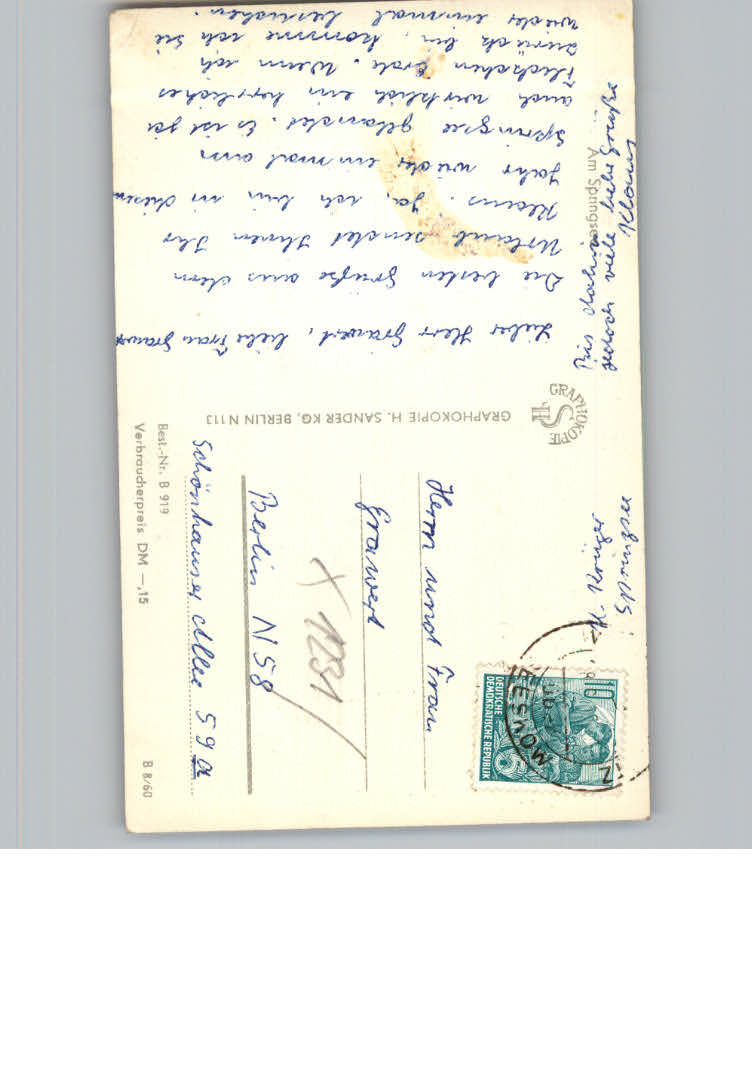 Lieber Herr Grawert, liebe Frau Grawert
Die besten Grüße aus dem
Urlaub sendet Ihnen Ihr
Klaus. Ja, ich bin in diesem
Jahr wieder einmal am
Springsee gelandet. Es ist ja
auch wirklich ein herrliches
Fleckchen Erde. Wenn ich
zurück bin, komme ich Sie
wieder einmal besuchen.
Bis dahin
jedoch viele liebe Grüße
Klaus
Am Springsee
GRAPHOKOPIE
HS
GRAPHOKOPIE H. SANDER KG, BERLIN N 113
K. Krüger
Springsee
10
DEUTSCHE
DEMOKRATISCHE REPUBLIK
5
Herrn und Frau
Grawert
X 1231
Berlin N 58
Schönhauser Allee 59a
Best.-Nr. B 919
Verbraucherpreis DM –,15
B 8/60